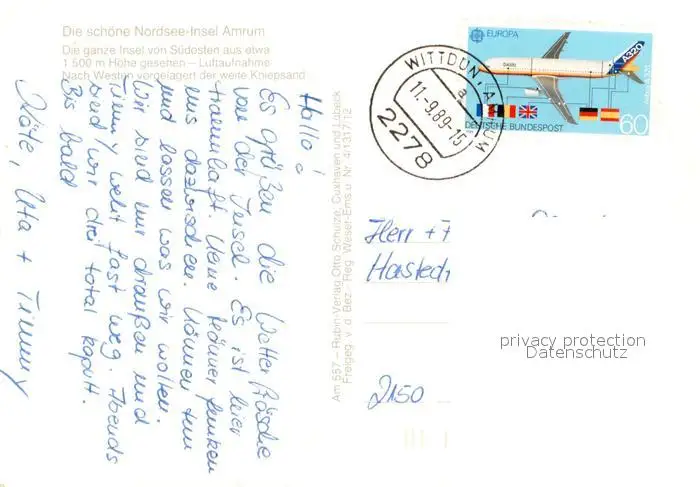 Die schöne Nordsee-Insel Amrum
Die ganze Insel von Südosten aus etwa
1 500 m Höhe gesehen – Luftaufnahme
Nach Westen vorgelagert der weite Kniepsand
Hallo!
Es grüßen die Wetterfrösche
von der Insel. Es ist hier
traumhaft. Keine Männer funken
uns dazwischen. Können tun
und lassen was wir wollen.
Wir sind nur draußen und
Timmy weht fast weg. Abends
sind wir drei total kaputt.
Bis bald
Käte, Uta + Timmy
Am 557 – Rubin-Verlag Otto Schulze, Cuxhaven und Lübeck
Freigeg. v. d. Bez. Reg. Weser-Ems u. Nr. 4/1317/12
EUROPA
A320
Airbus A320
DEUTSCHE BUNDESPOST
60
WITTDÜN, AMRUM
a
11.-9.89-15
2278
Herr + F
Hastedt
2150
privacy protection
Datenschutz